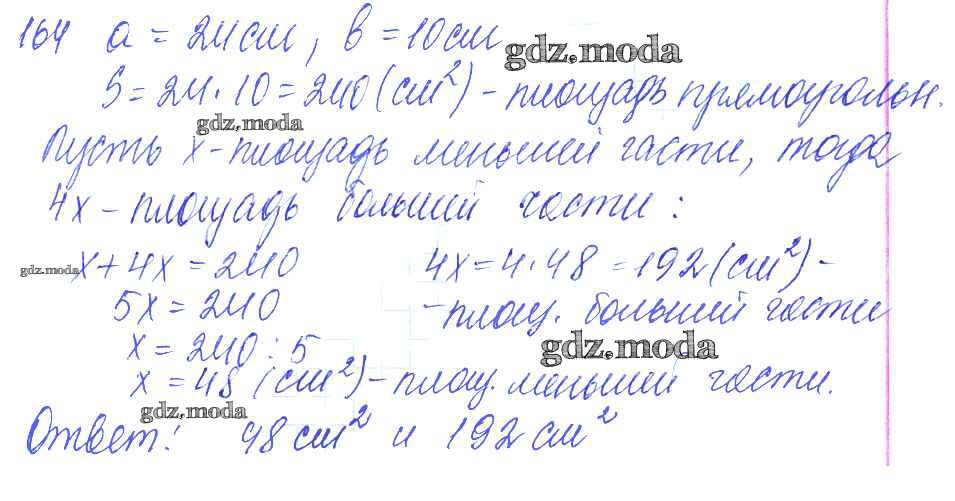 164 a = 24 см, b = 10 см
gdz.moda
S = 24 · 10 = 240 (см²) – площадь прямоугольн.
gdz.moda
Пусть x – площадь меньшей части, тогда
4x – площадь большей части :
gdz.moda x + 4x = 240 4x = 4 · 48 = 192 (см²) –
5x = 240 – площ. большей части
x = 240 : 5 gdz.moda
x = 48 (см²) – площ. меньшей части.
gdz.moda
Ответ: 48 см² и 192 см²